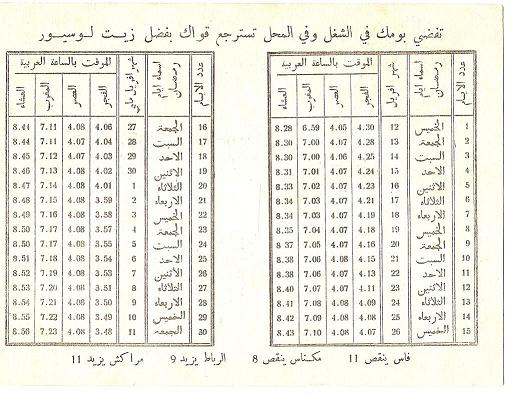 تقضي يومك في الشغل وفي المحل تسترجع قواك بفضل زيت لوسيور
عدد الايام اسماء ايام رمضان شهر افريل الموقت بالساعة العربية
الفجر العصر المغرب العشاء
1 الخميس 12 4.30 4.05 6.59 8.28
2 الجمعة 13 4.28 4.07 7.00 8.30
3 السبت 14 4.25 4.06 7.00 8.30
4 الاحد 15 4.24 4.07 7.01 8.31
5 الاثنين 16 4.23 4.07 7.02 8.33
6 الثلاثاء 17 4.21 4.07 7.03 8.34
7 الاربعاء 18 4.19 4.07 7.03 8.34
8 الخميس 19 4.18 4.07 7.04 8.35
9 الجمعة 20 4.16 4.08 7.05 8.37
10 السبت 21 4.15 4.08 7.06 8.38
11 الاحد 22 4.13 4.08 7.06 8.38
12 الاثنين 23 4.11 4.07 7.07 8.40
13 الثلاثاء 24 4.09 4.08 7.08 8.41
14 الاربعاء 25 4.08 4.08 7.09 8.42
15 الخميس 26 4.07 4.08 7.10 8.43
عدد الايام اسماء ايام رمضان شهر افريل ماي الموقت بالساعة العربية
الفجر العصر المغرب العشاء
16 الجمعة 27 4.06 4.08 7.11 8.44
17 السبت 28 4.04 4.07 7.11 8.44
18 الاحد 29 4.03 4.07 7.12 8.45
19 الاثنين 30 4.02 4.08 7.13 8.46
20 الثلاثاء 1 4.01 4.08 7.14 8.47
21 الاربعاء 2 3.59 4.08 7.15 8.48
22 الخميس 3 3.58 4.08 7.16 8.49
23 الجمعة 4 3.57 4.08 7.17 8.50
24 السبت 5 3.55 4.08 7.17 8.50
25 الاحد 6 3.54 4.08 7.18 8.51
26 الاثنين 7 3.53 4.08 7.19 8.52
27 الثلاثاء 8 3.51 4.08 7.20 8.53
28 الاربعاء 9 3.50 4.08 7.21 8.54
29 الخميس 10 3.49 4.08 7.22 8.55
30 الجمعة 11 3.48 4.08 7.23 8.56
فاس ينقص 11 مكناس ينقص 8 الرباط يزيد 9 مراكش يزيد 11